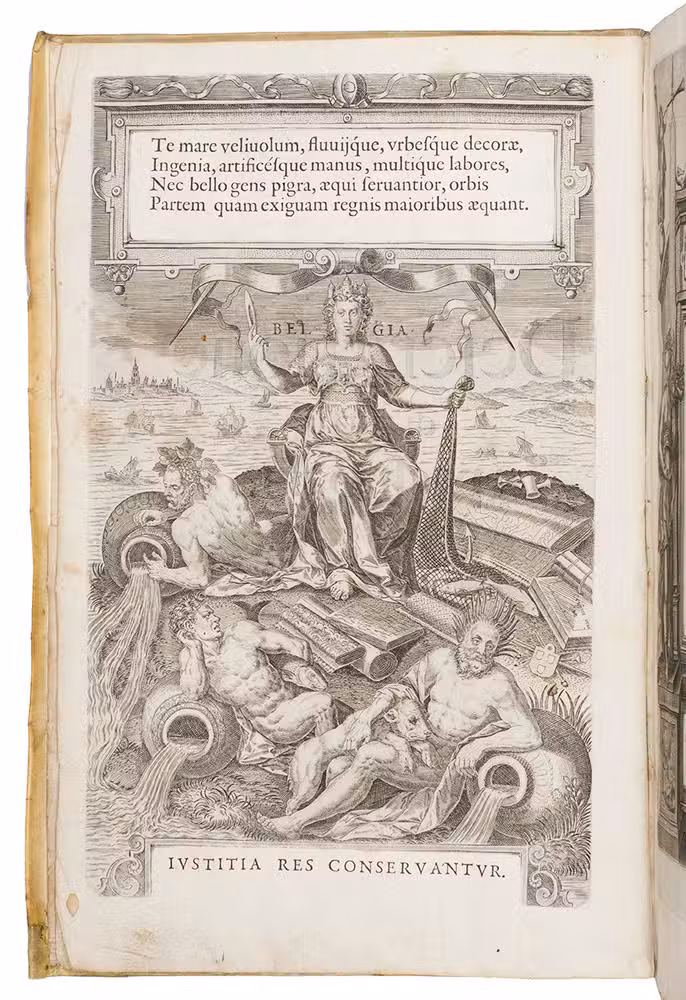 Te mare veliuolum, fluuijq́ue, vrbeſq́ue decoræ,
Ingenia, artificéſque manus, multiq́ue labores,
Nec bello gens pigra, æqui ſeruantior, orbis
Partem quam exiguam regnis maioribus æquant.
BEL-GIA.
IVSTITIA RES CONSERVANTVR.